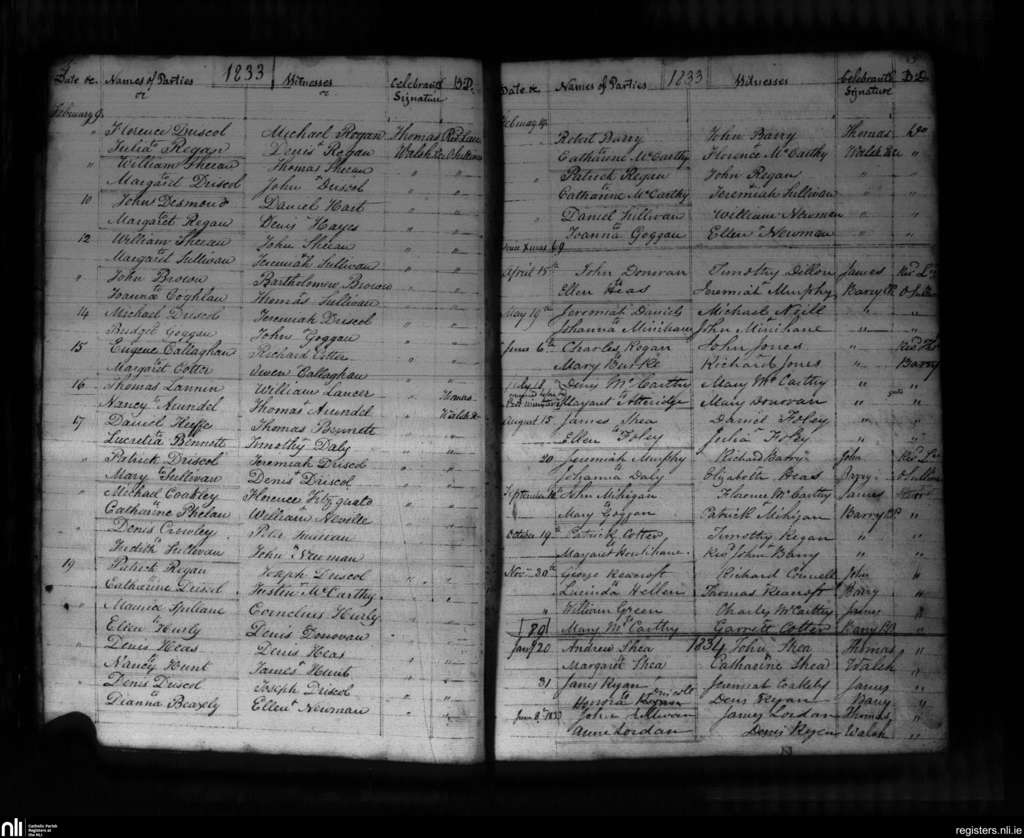 Date &c. Names of Parties 1833 Witnesses Celebrants Signature B.D.
February 9.
" Florence Driscol Michael Regan Thomas
Julia Regan Denis Regan Walsh
" William Sheean Thomas Sheean " "
Margaret Driscol John Driscol " "
10 John Desmond Daniel Hart " "
Margaret Regan Denis Hayes " "
12 William Sheean John Sheean " "
Margaret Sullivan Jeremiah Sullivan " "
" John Brown Bartholomew Brown " "
Joanna Coghlan Thomas Sullivan " "
14 Michael Driscol Jeremiah Driscol " "
Bridget Goggan John Goggan " "
15 Eugene Callaghan Richard Cotter " "
Margaret Cotter Owen Callaghan " "
16 Thomas Lannin William Lancer Thomas
Nancy Arundel Thomas Arundel Walsh
17 Daniel Keeffe Thomas Bennette " "
Lucretia Bennette Timothy Daly " "
" Patrick Driscol Jeremiah Driscol " "
Mary Sullivan Denis Driscol " "
" Michael Coakley Florence " "
Catharine Phelan William " "
" Denis Crowley Peter Sullivan " "
Judith Sullivan John Newman " "
19 Patrick Regan Joseph Driscol " "
Catharine Driscol Justin McCarthy " "
" Spillane Cornelius Hurly " "
Ellen Hurly Denis Donovan " "
" Denis Heas Denis Heas " "
Nancy Hunt James Hunt " "
" Denis Driscol Joseph Driscol " "
Dianna Beazely Ellen Newman " "
Date &c. Names of Parties 1833 Witnesses Celebrants Signature B.D.
February 19.
Robert Barry John Barry Thomas
Catharine McCarthy Florence McCarthy Walsh "
" Patrick Regan John Regan " "
Catharine McCarthy Jeremiah Sullivan " "
" Daniel Sullivan William Newman " "
Joanna Goggan Ellen Newman " "
Xmas 69
April 15th John Donovan Timothy Dillon James
Ellen Heas Jeremiah Murphy Barry
May 19th Jeremiah Daniels Michael Neill " "
Johanna Minihane John Minihane " "
June 6th Charles Regan John Jones "
Mary Burke Richard Jones " Barry
July 18 Deny McCarthy Mary McCarthy " "
Margaret Mary Donovan " "
August 15 James Shea Daniel Foley " "
Ellen Foley Julia Foley " "
20 Jeremiah Murphy Richard Barry John
Johanna Daly Elizabeth Heas Barry
September John Mihigan Florence McCarthy James
Mary Goggan Patrick Mihigan Barry "
October 19th Patrick Cotter Timothy Regan " "
Margaret Houlihane Revd John Barry " "
Nov. 30th George Beacroft Richard Connell John "
Lucinda Hellen Thomas Beacroft Barry "
" William Green Charly McCarthy James "
89 Mary McCarthy Garrett Cotter Barry "
1834
Jany 20 Andrew Shea John Shea Thomas "
Margaret Shea Catharine Shea Walsh "
31 James Ryan Jeremiah Coakely James "
Honora Denis Ryan Barry "
John Sullivan James Lordan Thomas "
Anne Lordan Denis Ryan Walsh "
nli Catholic Parish Registers at the NLI
registers.nli.ie